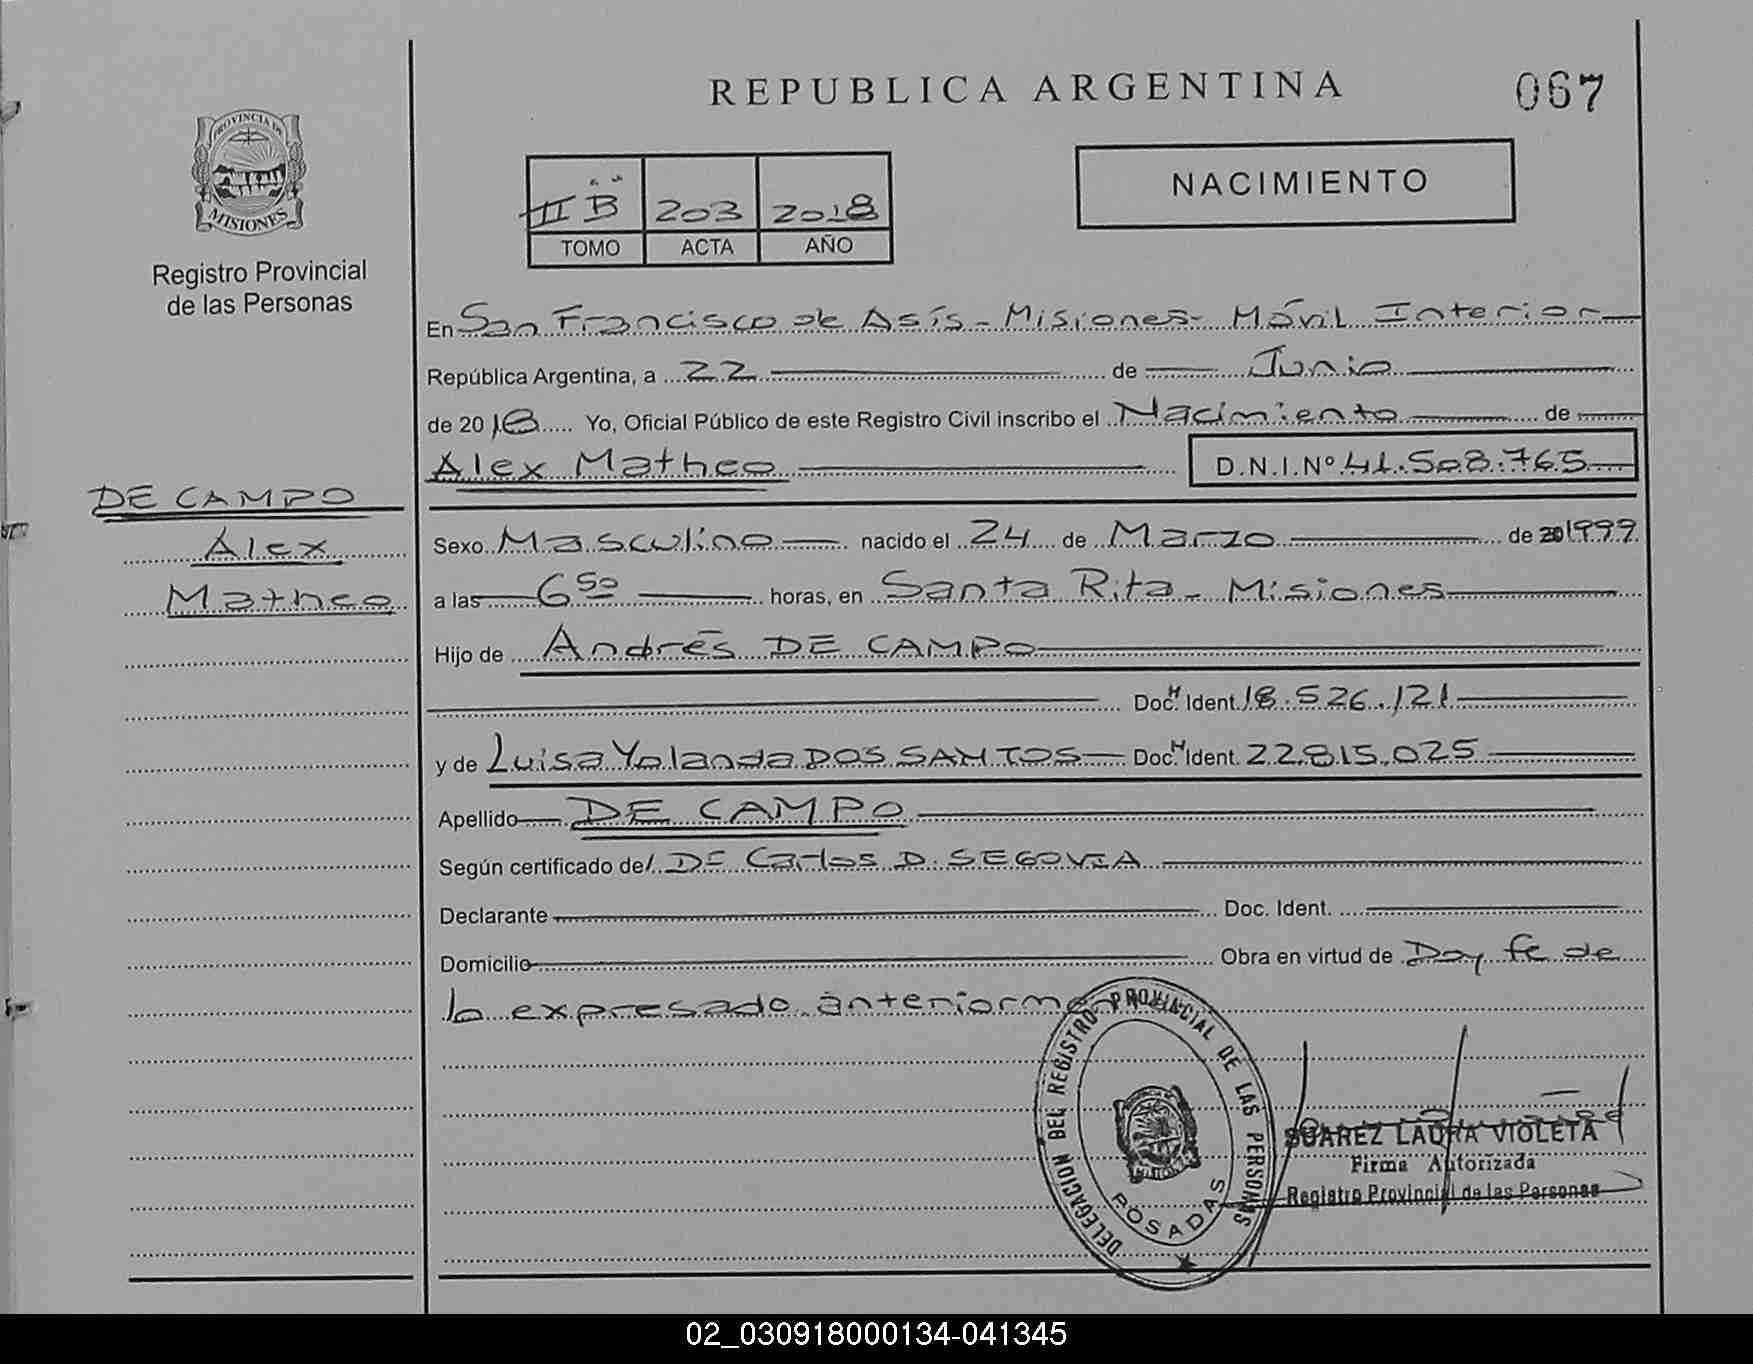 REPUBLICA ARGENTINA
067
PROVINCIA DE
MISIONES
Registro Provincial
de las Personas
NACIMIENTO
II B 203 2018
TOMO ACTA AÑO
En San Francisco de Asís - Misiones - Móvil Interior
República Argentina, a 22 de Junio
de 2018 Yo, Oficial Público de este Registro Civil inscribo el Nacimiento de
Alex Matheo D.N.I.Nº 41.508.765
DE CAMPO
Alex
Matheo
Sexo Masculino nacido el 24 de Marzo de 1999
a las 6 50 horas, en Santa Rita - Misiones
Hijo de Andrés DE CAMPO
Doc. Ident. 18.526.121
y de Luisa Yolanda DOS SANTOS Doc. Ident. 22.815.025
Apellido DE CAMPO
Según certificado de/ DE Carlos D. SEGOVIA
Declarante Doc. Ident.
Domicilio Obra en virtud de Doy fe de
lo expresado anteriorme
DELEGACION DEL REGISTRO PROVINCIAL DE LAS PERSONAS
POSADAS
SUAREZ LAURA VIOLETA
Firma Autorizada
Registro Provincial de las Personas
02_030918000134-041345